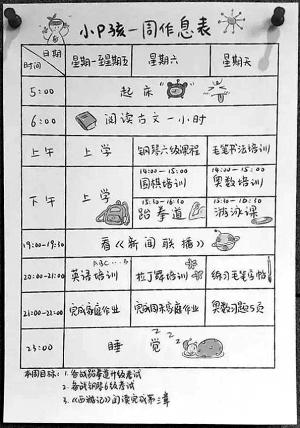 小P孩一周作息表
日期
时间
星期一至星期五 星期六 星期天
5:00 起床
6:00 阅读古文一小时
上午 上学 钢琴六级课程 毛笔书法培训
下午 上学
14:00-15:00 围棋培训
14:00-15:00 奥数培训
15:10-16:10 跆拳道
15:10-16:30 游泳课
19:00-19:30 看《新闻联播》
20:00-21:00 ABC... 英语培训 拉丁舞培训 练习毛笔字帖
21:00-22:00 完成家庭作业 完成周末家庭作业 奥数习题5页
23:00 睡觉 zzz
本周目标:1.备战跆拳道升级考试
2.备战钢琴6级考试
3.《西游记》阅读完成第三章